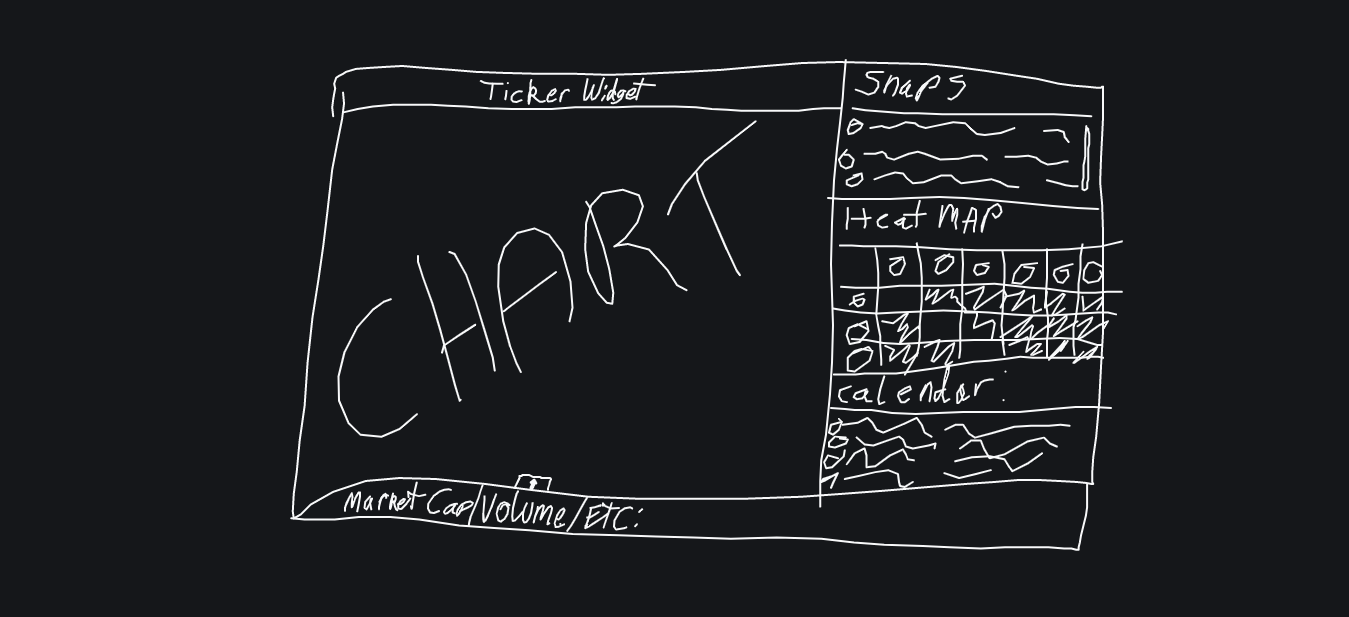 Ticker Widget
Snaps
CHART
Heat MAP
calendar:
Market Cap/Volume/ETC: